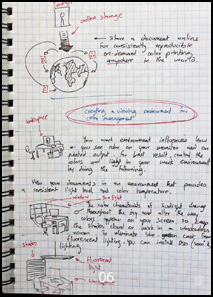 online storage
Share a document online
for consistently reproducible
on-demand color printing
anywhere in the world.
creating a viewing environment for
color management
workspace
Your work environment influences how
you see color on your monitor and on
printed output. For best result, control the
colors and light in your work environment
by doing the following.
View your documents in an environment that provides a
consistent light level and color temperature.
sunlight
The color characteristic of sunlight change
throughout the day and alter the way
colors appear on your screen so keep
the shades closed or work in a windowless
room. To eliminate the green cast from
fluorescent lighting, you can install D50
lighting.
shades
Fluorescent
light
06